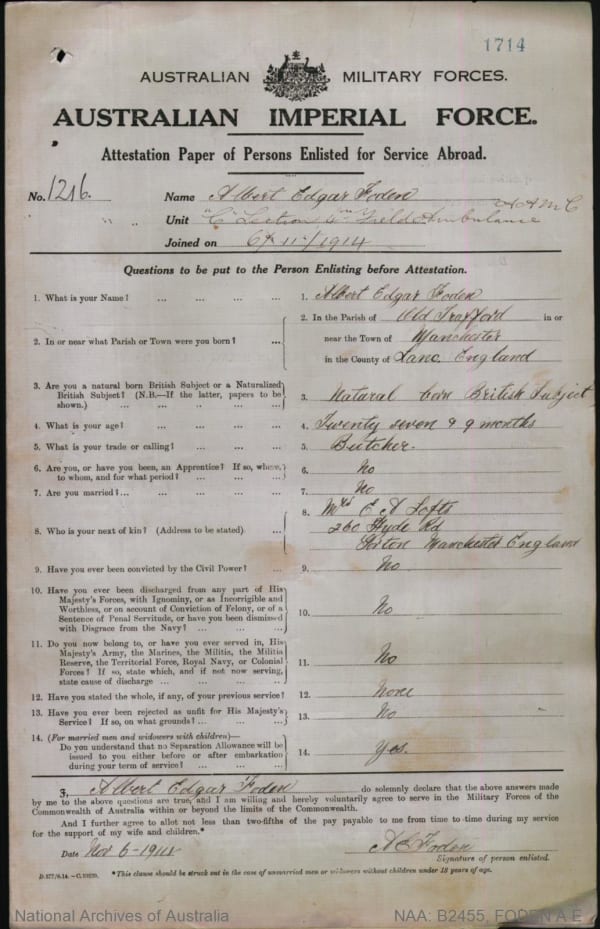 1714
AUSTRALIAN MILITARY FORCES.
AUSTRALIAN IMPERIAL FORCE.
Attestation Paper of Persons Enlisted for Service Abroad.
No. 1216. Name Albert Edgar Foden
" " Unit "C" Section 4th Field Ambulance A A M C
Joined on 6/11/1914
Questions to be put to the Person Enlisting before Attestation.
1. What is your Name? ... ... ... ... 1. Albert Edgar Foden
2. In or near what Parish or Town were you born? ... 2. In the Parish of Old Trafford in or
near the Town of Manchester
in the County of Lanc. England
3. Are you a natural born British Subject or a Naturalized
British Subject? (N.B.—If the latter, papers to be
shown.) ... ... ... ... ... 3. Natural born British Subject
4. What is your age? ... ... ... ... 4. Twenty seven & 9 months
5. What is your trade or calling? ... ... ... 5. Butcher.
6. Are you, or have you been, an Apprentice? If so, where,
to whom, and for what period? ... ... ... 6. No
7. Are you married? ... ... ... ... 7. No
8. Who is your next of kin? (Address to be stated) ... 8. Mrs E A Lofts
260 Hyde Rd
Gorton Manchester England
9. Have you ever been convicted by the Civil Power? ... 9. No
10. Have you ever been discharged from any part of His
Majesty's Forces, with Ignominy, or as Incorrigible and
Worthless, or on account of Conviction of Felony, or of a
Sentence of Penal Servitude, or have you been dismissed
with Disgrace from the Navy? ... ... ... 10. No
11. Do you now belong to, or have you ever served in, His
Majesty's Army, the Marines, the Militia, the Militia
Reserve, the Territorial Force, Royal Navy, or Colonial
Forces? If so, state which, and if not now serving,
state cause of discharge ... ... ... 11. No
12. Have you stated the whole, if any, of your previous service? 12. None
13. Have you ever been rejected as unfit for His Majesty's
Service? If so, on what grounds? ... ... ... 13. No
14. (For married men and widowers with children)—
Do you understand that no Separation Allowance will be
issued to you either before or after embarkation
during your term of service? ... ... ... 14. Yes.
I, Albert Edgar Foden do solemnly declare that the above answers made
by me to the above questions are true, and I am willing and hereby voluntarily agree to serve in the Military Forces of the
Commonwealth of Australia within or beyond the limits of the Commonwealth.
And I further agree to allot not less than two-fifths of the pay payable to me from time to time during my service
for the support of my wife and children.*
Date Nov 6-1914 A E Foden
Signature of person enlisted.
*This clause should be struck out in the case of unmarried men or widowers without children under 18 years of age.
National Archives of Australia NAA: B2455, FODEN A E